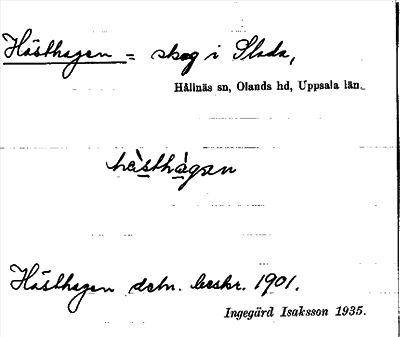 Hästhagen = skog i Slada,
Hållnäs sn, Olands hd, Uppsala län.
hàsthàgɛn
Hästhagen dtn. beskr. 1901.
Ingegärd Isaksson 1935.